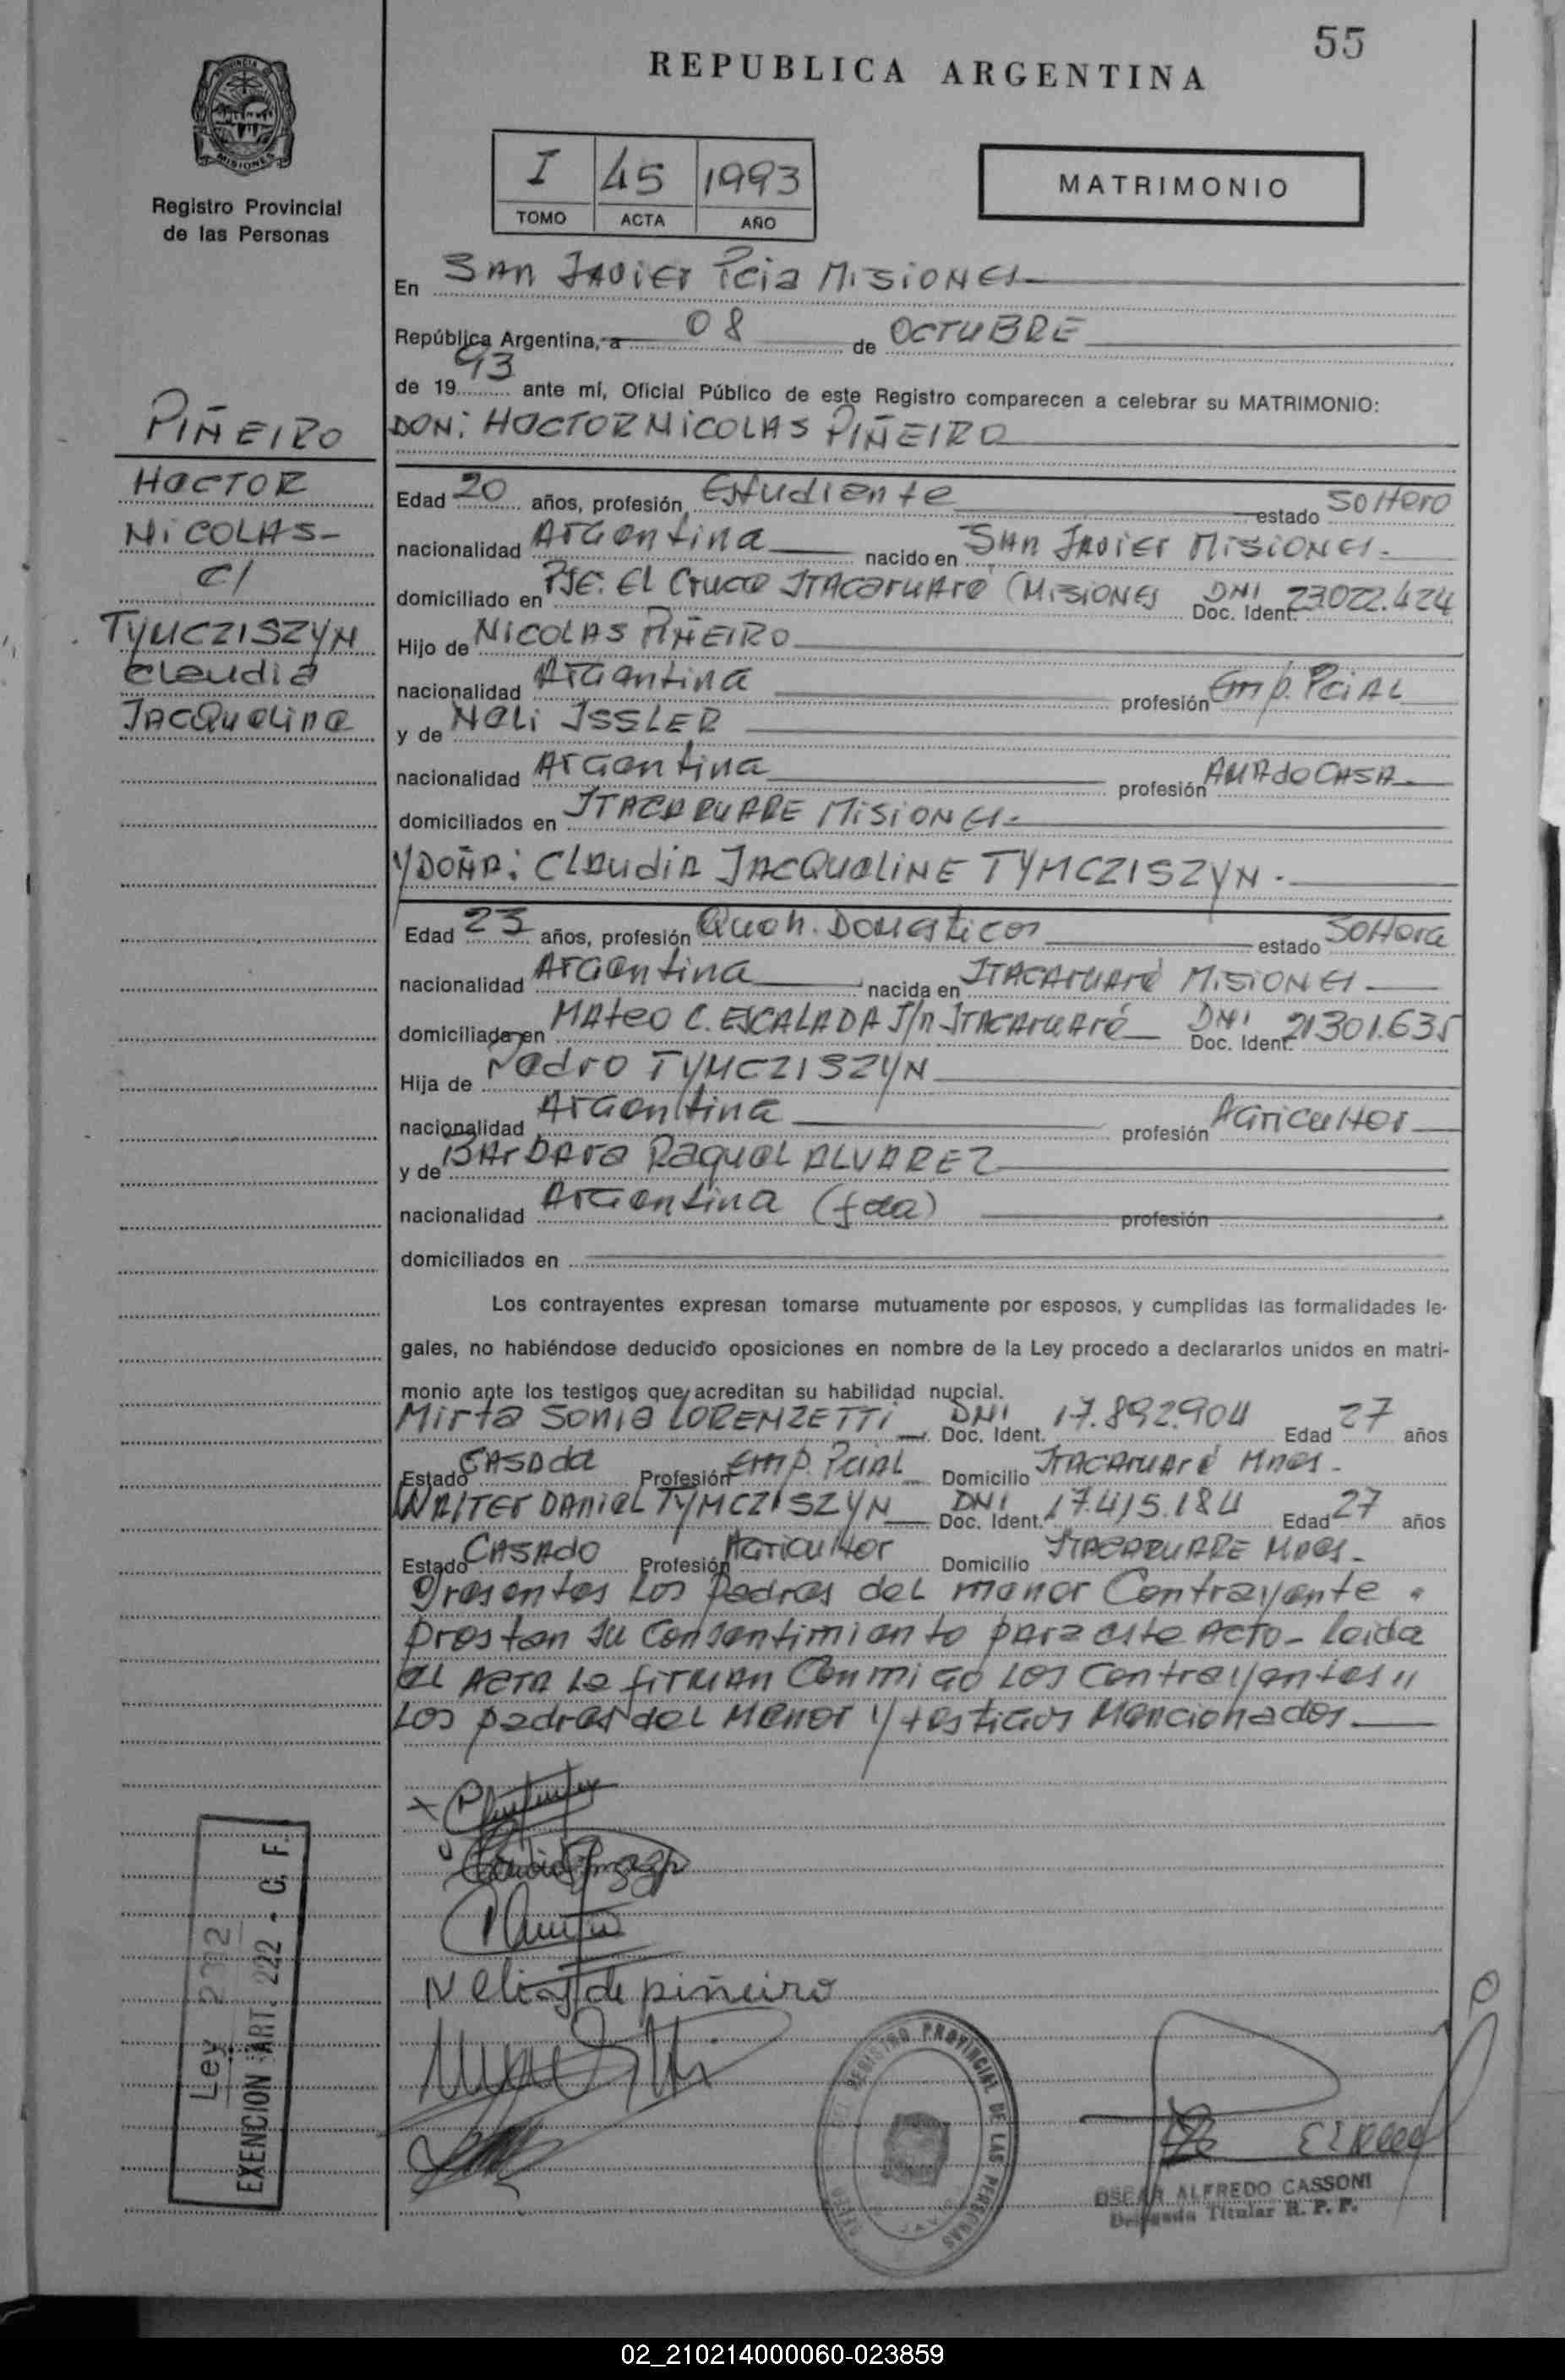 55
REPUBLICA ARGENTINA
PROVINCIA DE
MISIONES
Registro Provincial
de las Personas
I 45 1993
TOMO ACTA AÑO
MATRIMONIO
En SAN JAVIER Pcia MISIONES
República Argentina, a 08 de OCTUBRE
de 1993 ante mí, Oficial Público de este Registro comparecen a celebrar su MATRIMONIO:
DON: HECTOR NICOLAS PIÑEIRO
PIÑEIRO
HECTOR
NICOLAS-
C/
TYMCZISZYN
Claudia
JACQUELINE
Edad 20 años, profesión Estudiente estado Soltero
nacionalidad Argentina nacido en SAN JAVIER MISIONES.
domiciliado en PJE. El Cruce ITACARUARE (MISIONES DNI Doc. Ident. 23022.424
Hijo de NICOLAS PIÑEIRO
nacionalidad Argentina profesión Emp. PciAL
y de Neli ISSLER
nacionalidad Argentina profesión AMAdeCASA
domiciliados en ITACARUARE MISIONES.
Y DOÑA: Claudia JACQUELINE TYMCZISZYN.
Edad 23 años, profesión Queh. Domesticos estado Soltera
nacionalidad Argentina nacida en ITACARUARé MISIONES
domiciliada en MAteo C. ESCALADA S/n ITACARUARé DNI Doc. Ident. 21301.635
Hija de Pedro TYMCZISZYN
nacionalidad Argentina profesión Agricultor
y de BArbara Raquel ALVAREZ
nacionalidad Argentina (fda) profesión
domiciliados en
Los contrayentes expresan tomarse mutuamente por esposos, y cumplidas las formalidades le-
gales, no habiéndose deducido oposiciones en nombre de la Ley procedo a declararlos unidos en matri-
monio ante los testigos que acreditan su habilidad nupcial.
Mirta Sonia LORENZETTI DNI Doc. Ident. 17.892.904 Edad 27 años
Estado CASADA Profesión Emp. PciAL Domicilio ITACARUARé Mnes.
WALTER DANIEL TYMCZISZYN DNI Doc. Ident. 17.415.184 Edad 27 años
Estado CASADO Profesión Agricultor Domicilio ITACARUARE Mnes.
Presentes Los Padres del menor Contrayente
prestan su consentimiento para este Acto- Leida
el ACTA la firman conmigo los contrayentes
Los padres del Menor y testigos Mencionados
Neli de piñeiro
Ley 2
EXENCION ART. 222 - C. F.
REGISTRO PROVINCIAL DE LAS PERSONAS
OSCAR ALFREDO CASSONI
Delegado Titular R. P. P.
02_210214000060-023859